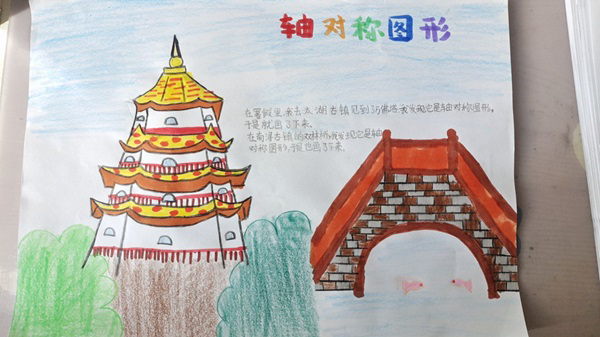 轴对称图形
在暑假里,来去太湖古镇见到了佛塔,我发现它是轴对称图形,
于是就画了下来.
在南浔古镇的双林桥,我发现它是轴
对称图形,于是也画了下来.